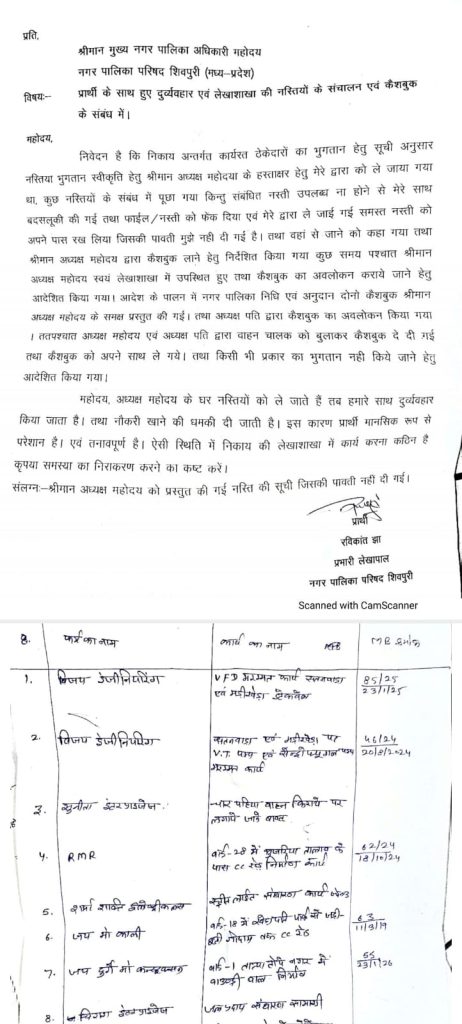 प्रति,
श्रीमान मुख्य नगर पालिका अधिकारी महोदय
नगर पालिका परिषद शिवपुरी (मध्य-प्रदेश)
विषयः– प्रार्थी के साथ हुए दुर्व्यवहार एवं लेखाशाखा की नस्तियों के संचालन एवं कैशबुक
के संबंध में।
महोदय,
निवेदन है कि निकाय अन्तर्गत कार्यरत ठेकेदारों का भुगतान हेतु सूची अनुसार
नस्तिया भुगतान स्वीकृति हेतु श्रीमान अध्यक्ष महोदया के हस्ताक्षर हेतु मेरे द्वारा को ले जाया गया
था, कुछ नस्तियों के संबंध में पूछा गया किन्तु संबंधित नस्ती उपलब्ध ना होने से मेरे साथ
बदसलूकी की गई तथा फाईल/नस्ती को फेक दिया एवं मेरे द्वारा ले जाई गई समस्त नस्ती को
अपने पास रख लिया जिसकी पावती मुझे नही दी गई है। तथा वहां से जाने को कहा गया तथा
श्रीमान अध्यक्ष महोदय द्वारा कैशबुक लाने हेतु निर्देशित किया गया कुछ समय पश्चात श्रीमान
अध्यक्ष महोदय स्वयं लेखाशाखा में उपस्थित हुए तथा कैशबुक का अवलोकन कराये जाने हेतु
आदेशित किया गया। आदेश के पालन में नगर पालिका निधि एवं अनुदान दोनो कैशबुक श्रीमान
अध्यक्ष महोदय के समक्ष प्रस्तुत की गई। तथा अध्यक्ष पति द्वारा कैशबुक का अवलोकन किया गया
। ततपश्चात अध्यक्ष महोदय एवं अध्यक्ष पति द्वारा वाहन चालक को बुलाकर कैशबुक दे दी गई
तथा कैशबुक को अपने साथ ले गये। तथा किसी भी प्रकार का भुगतान नही किये जाने हेतु
आदेशित किया गया।
महोदय, अध्यक्ष महोदय के घर नस्तियों को ले जाते हैं तब हमारे साथ दुर्व्यवहार
किया जाता है। तथा नौकरी खाने की धमकी दी जाती है। इस कारण प्रार्थी मानसिक रूप से
परेशान है। एवं तनावपूर्ण है। ऐसी स्थिति में निकाय की लेखाशाखा में कार्य करना कठिन है
कृपया समस्या का निराकरण करने का कष्ट करें।
संलग्नः–श्रीमान अध्यक्ष महोदय को प्रस्तुत की गई नस्ति की सूची जिसकी पावती नही दी गई।
प्रार्थी
रविकांत झा
प्रभारी लेखापाल
नगर पालिका परिषद शिवपुरी
Scanned with CamScanner
फर्म का नाम कार्य का नाम MB क्रमांक
1. विजय इंजीनियरिंग VFD मरम्मत कार्य 85/25
एवं मडीखेडा 23/1/25
2. विजय इंजीनियरिंग एवं मडीखेडा पर 46/24
V.T. पम्प एवं 20/8/2024
मरम्मत कार्य
3. सुनीता इंटरप्राइजेज चार पहिया वाहन किराये पर
लगाये जाने बावत
4. RMR वार्ड-28 में भुजरिया तालाब के 62/24
पास CC रोड निर्माण कार्य 18/10/24
5. शर्मा शक्ति इलेक्ट्रीकल्स स्ट्रीट लाईट संधारण कार्य
6. जय माँ काली वार्ड-18 में 63
CC रोड 11/3/19
7. जय दुर्गे माँ कन्स्ट्रक्शन वार्ड-1 तात्या टोपे नगर में 55
बाउण्ड्री वाल निर्माण 23/1/26
8. इंटरप्राइजेज जलप्रदाय संधारण सामग्री